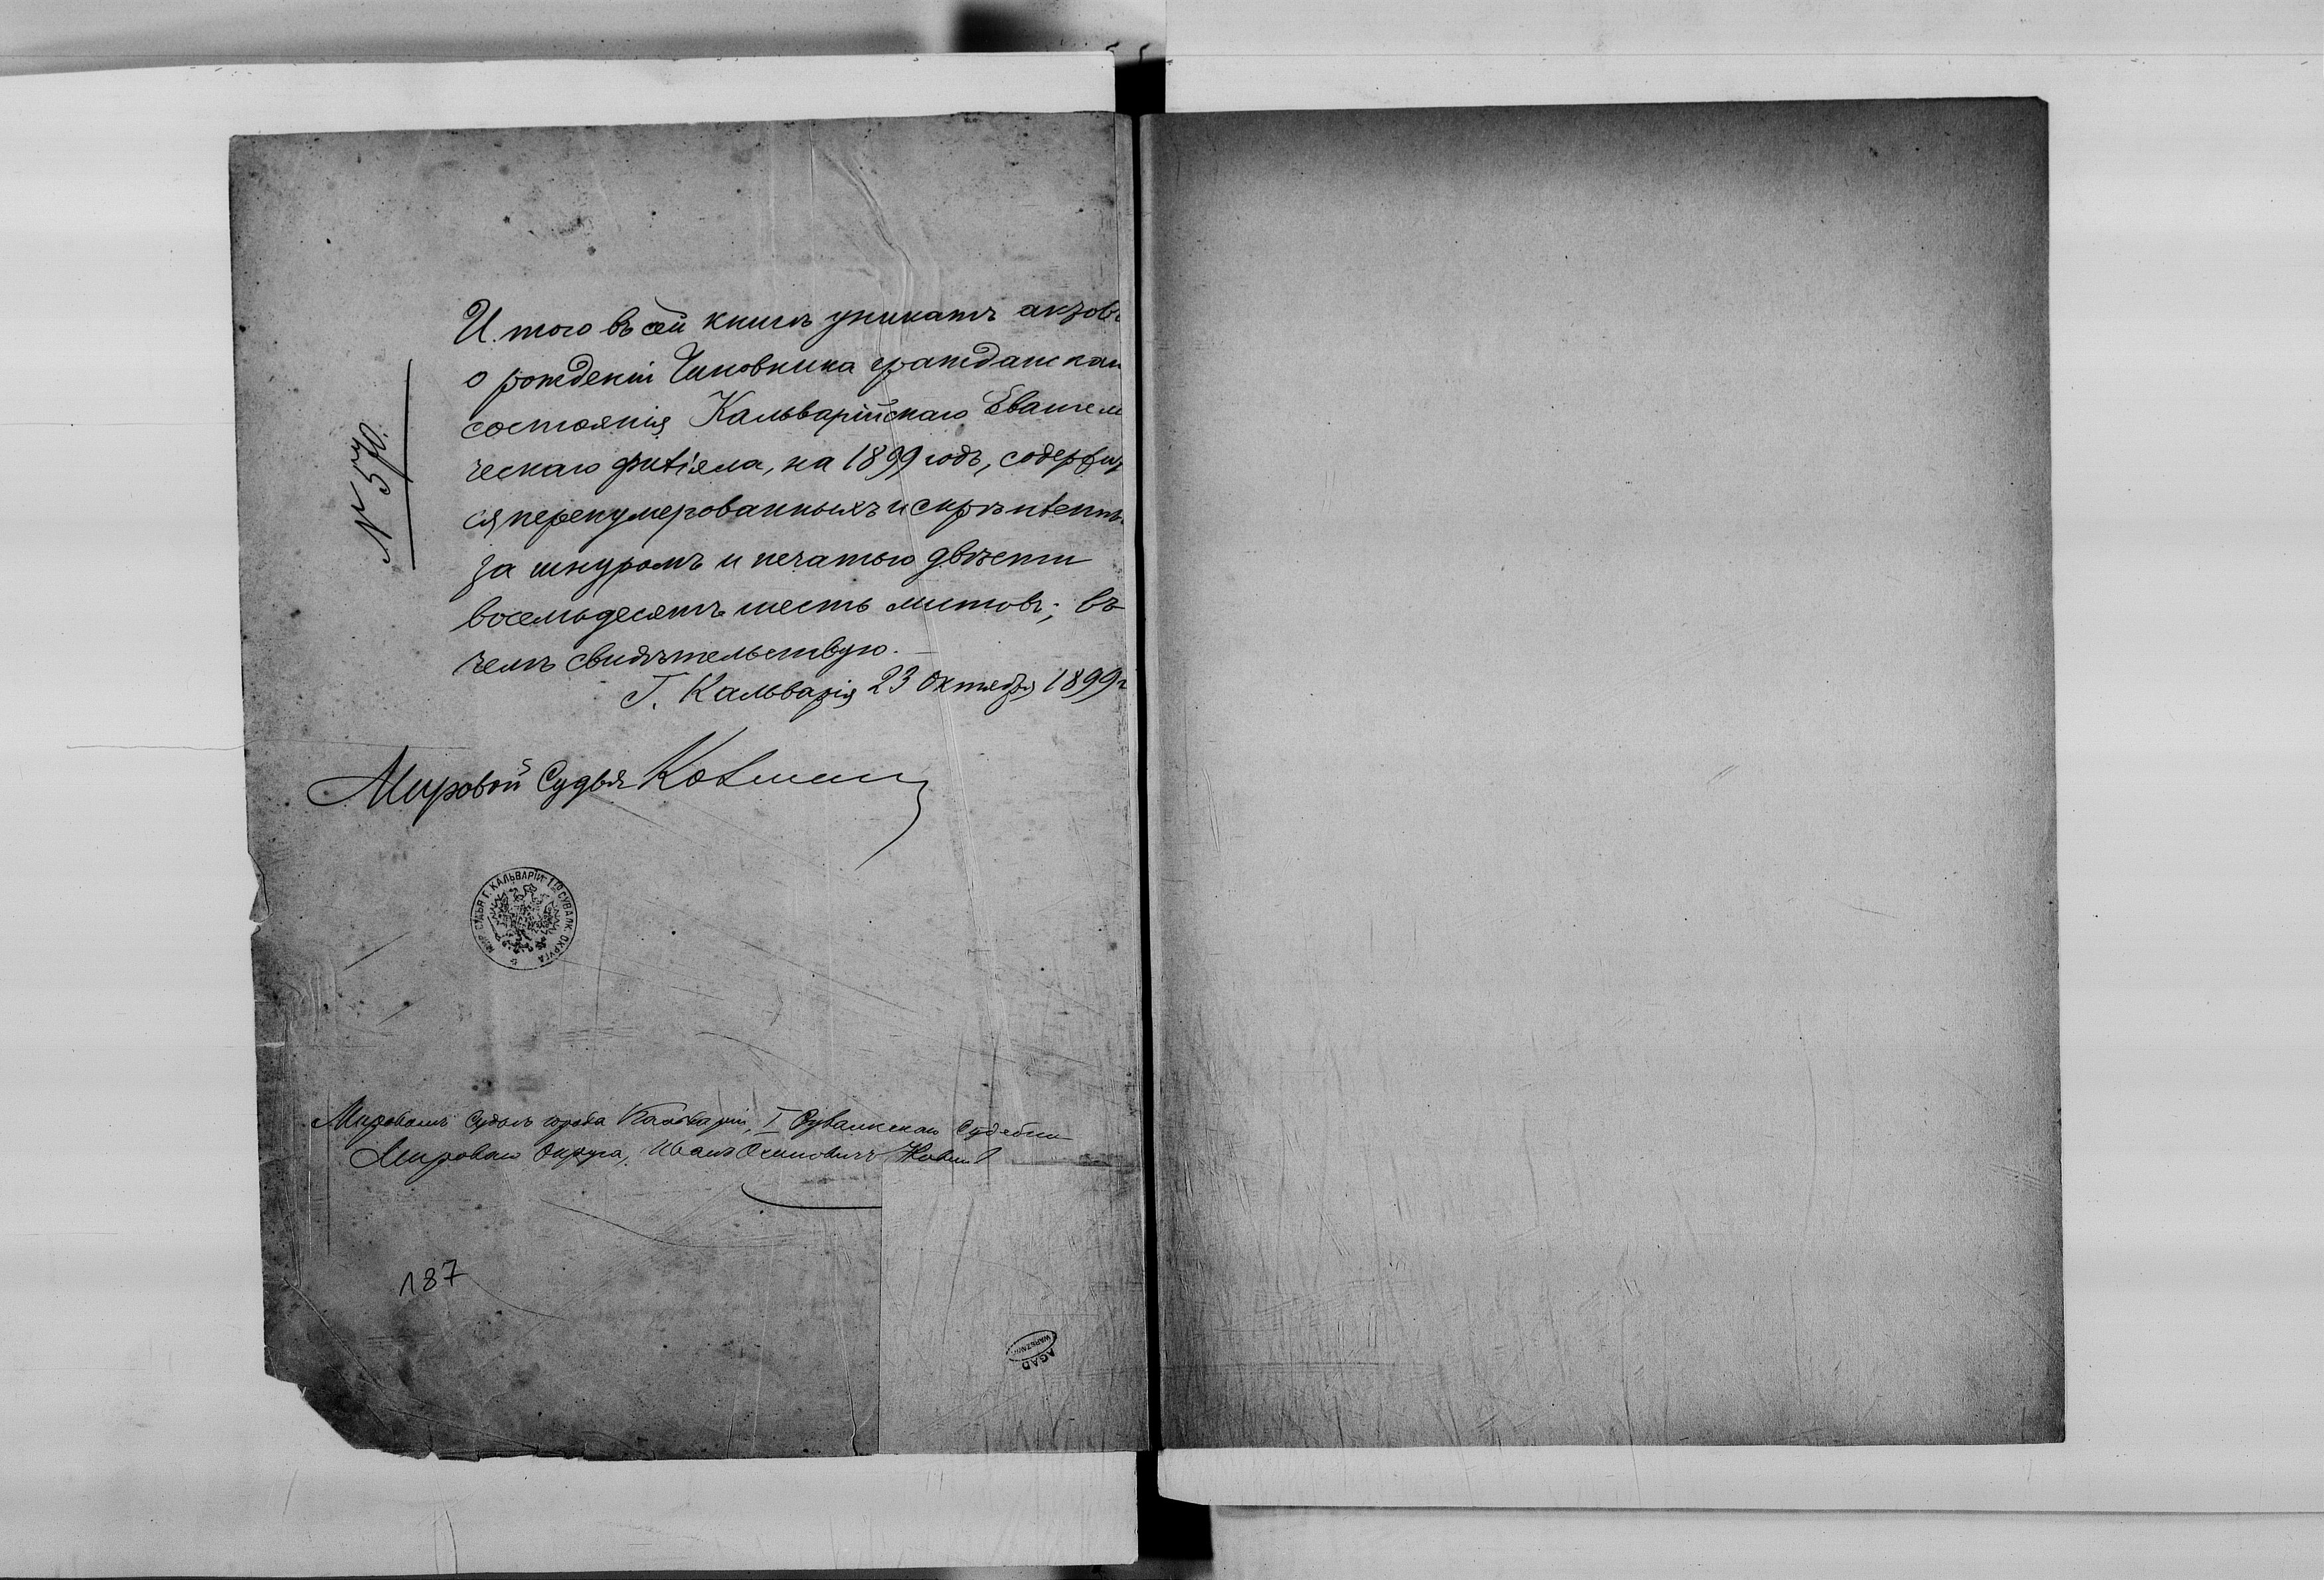 № 570.
И того въ сей книгѣ уникатъ актовъ
о рожденіи Чиновника гражданскаг
состоянія Кальварійскаго Евангели
ческаго филіяла, на 1899 годъ, содержит
ся перенумерованныхъ и скрѣпленны
за шнуромъ и печатью двѣсти
восемьдесятъ шесть листовъ; въ
чемъ свидѣтельствую.
Г. Кальварія 23 Октября 1899 г
Мировой Судья
МИР. СУДЬЯ Г. КАЛЬВАРІИ I ГО СУВАЛК. ОКРУГА
Мировымъ Судьею города Кальваріи, I Сувалкскаго Судебно
Мироваго Округа, Иванъ Осиповичъ
187
AGAD
WARSZAWA